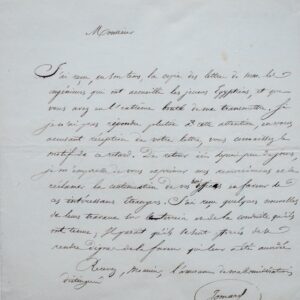 Monsieur
J'ai reçu, en son tems, la copie des lettres de mm. les
ingénieurs qui ont accueilli les jeunes Egyptiens, et que
vous avez eu l'extrême bonté de me transmettre. Si
je n'ai pas répondu plutôt à cette attention en vous
accusant réception de votre lettre, vous connaissez le
motif de ce retard. De retour ici depuis peu de jours,
je m'empresse de vous exprimer ma reconnaissance et de
réclamer la continuation de vos en faveur de
ces intéressans étrangers. J'ai reçu quelques nouvelles
de leurs travaux sur le terrain et de la conduite qu'ils
ont tenue; il paraît qu'ils se sont efforcés de se
rendre dignes de la faveur qui leur a été accordée
Recevez, Monsieur, l'assurance de ma considération
distinguée
Jomard